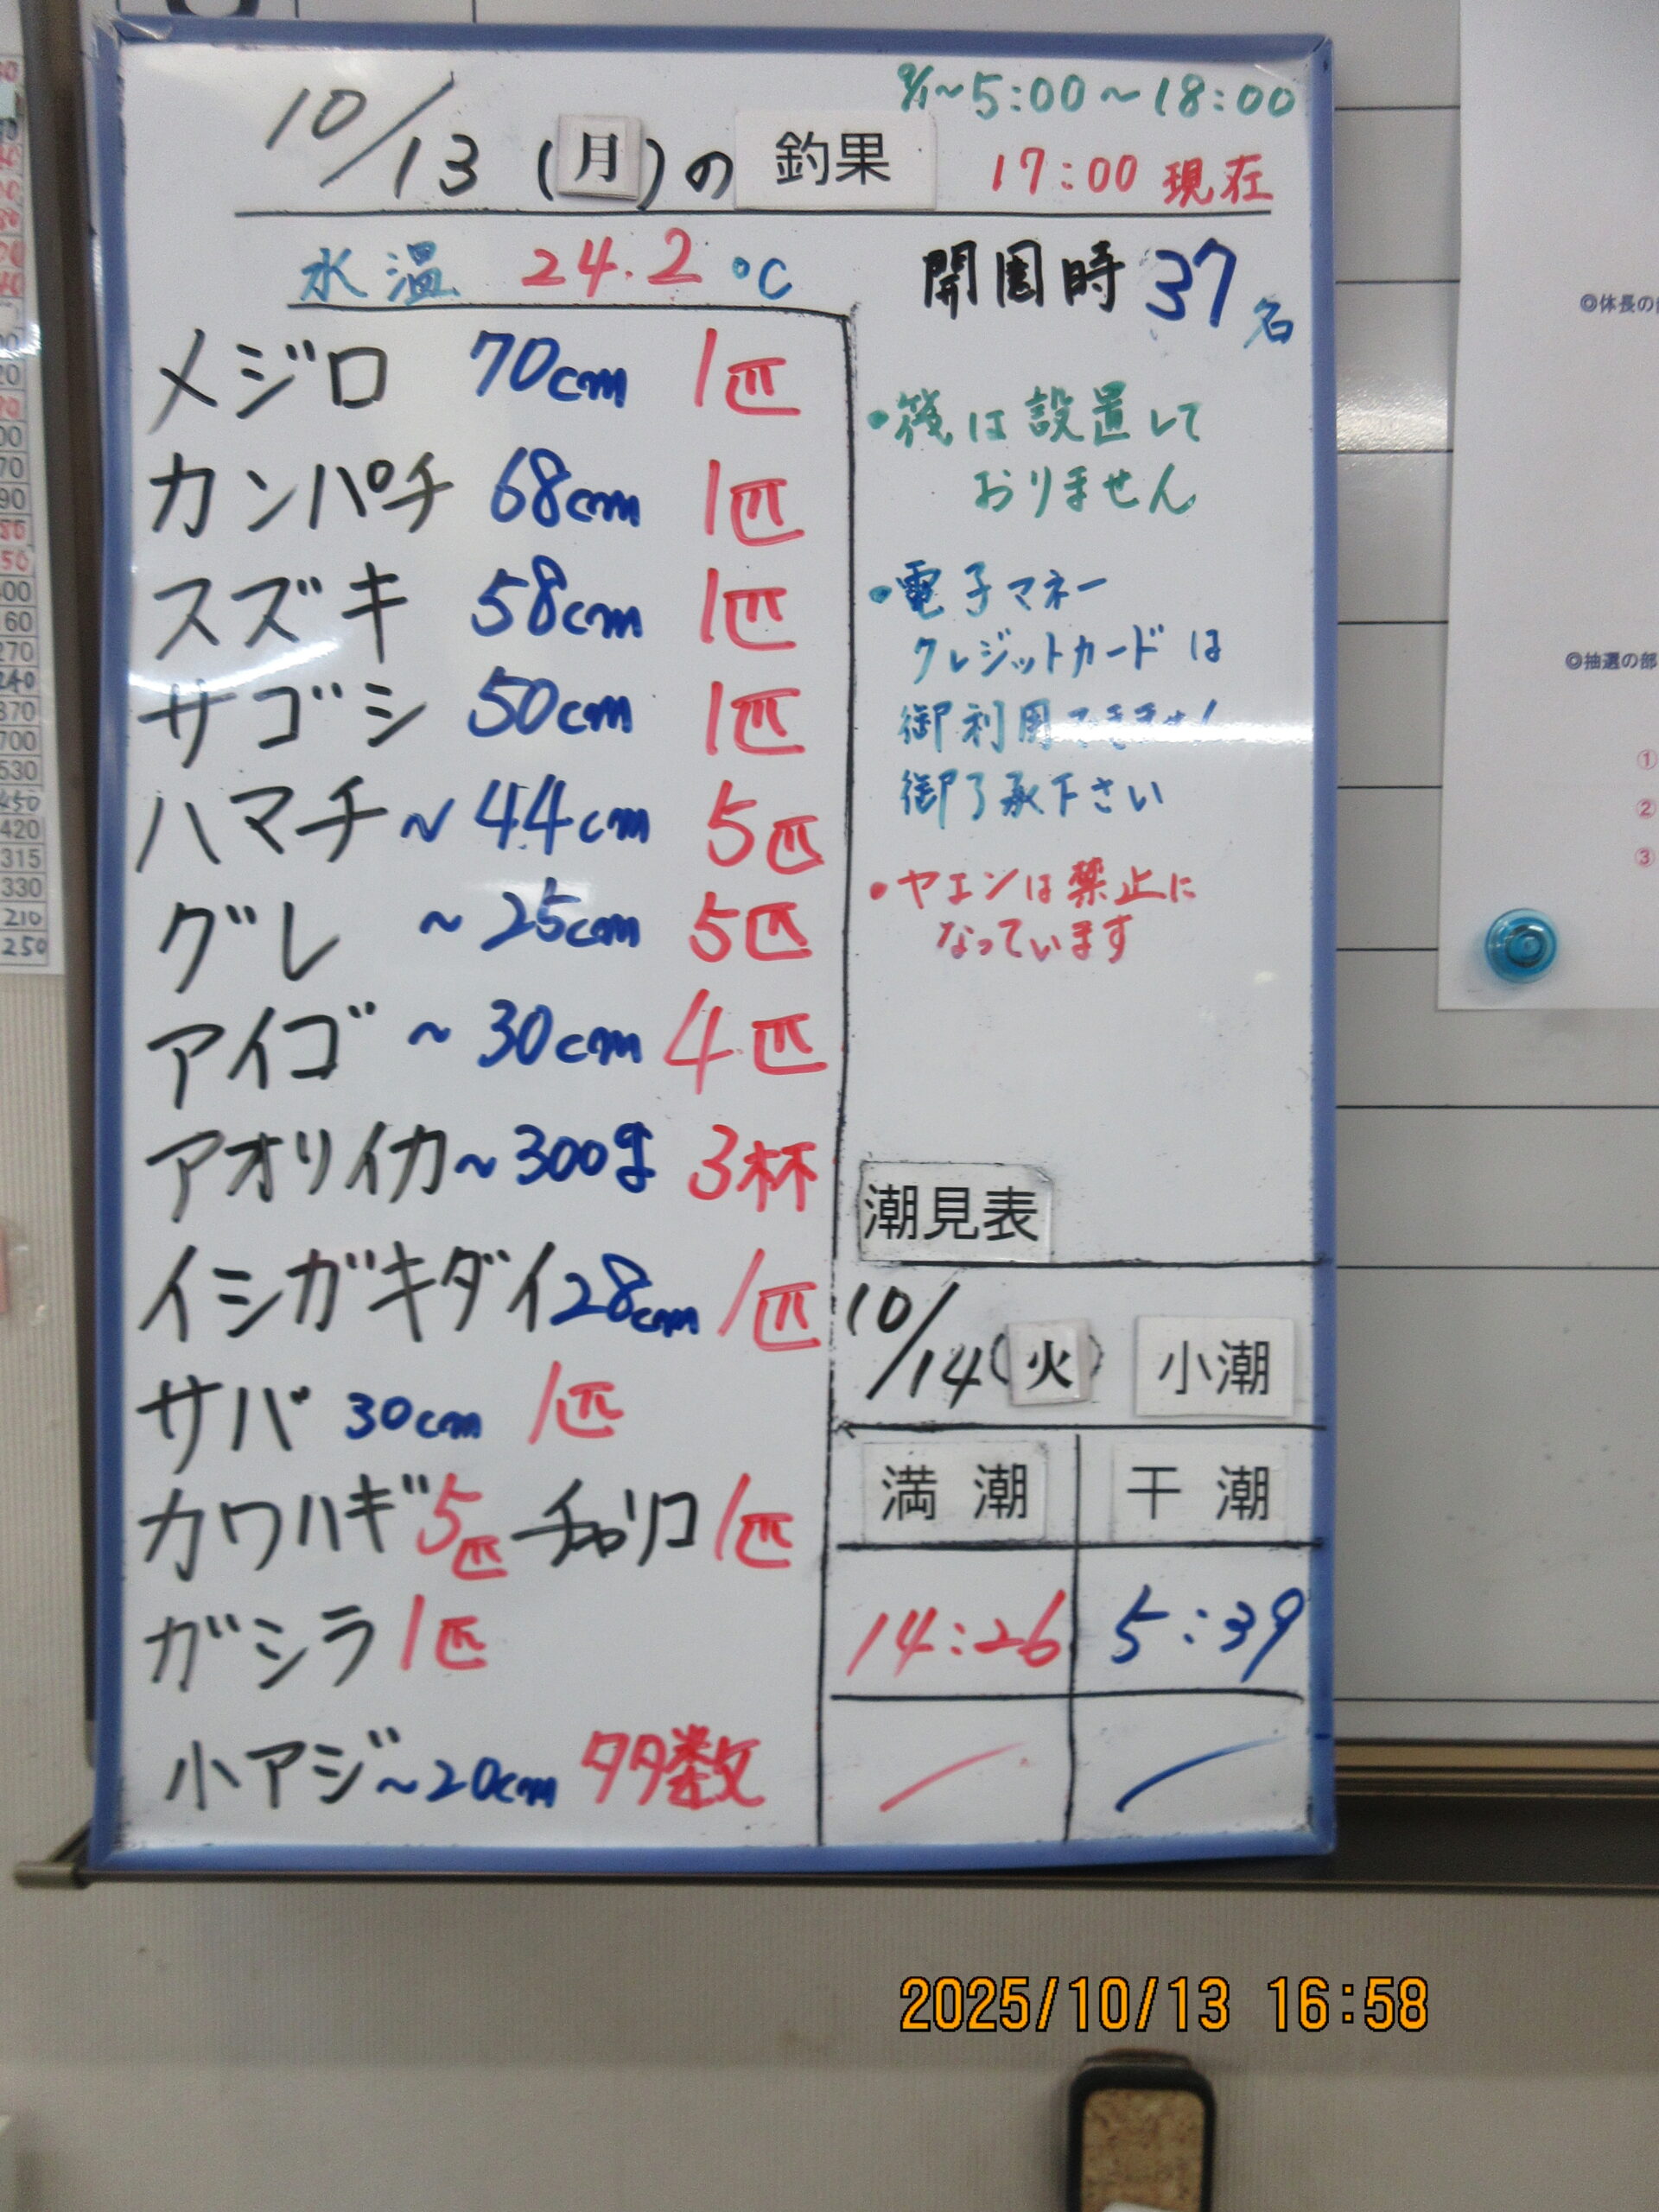 10/13(月)の釣果
9/1~5:00~18:00
17:00 現在
水温 24.2℃
開園時 37名
メジロ 70cm 1匹
カンパチ 68cm 1匹
スズキ 58cm 1匹
サゴシ 50cm 1匹
ハマチ ~44cm 5匹
グレ ~25cm 5匹
アイゴ ~30cm 4匹
アオリイカ ~300g 3杯
イシガキダイ 28cm 1匹
サバ 30cm 1匹
カワハギ 5匹 チャリコ 1匹
ガシラ 1匹
小アジ ~20cm 多数
・筏は設置して
おりません
・電子マネー
クレジットカードは
御利用できません
御了承下さい
・ヤエンは禁止に
なっています
潮見表
10/14(火) 小潮
満潮 干潮
14:26 5:39
◎体長の
◎抽選の部
①
②
③
60
270
240
370
700
530
450
420
315
330
210
250
2025/10/13 16:58